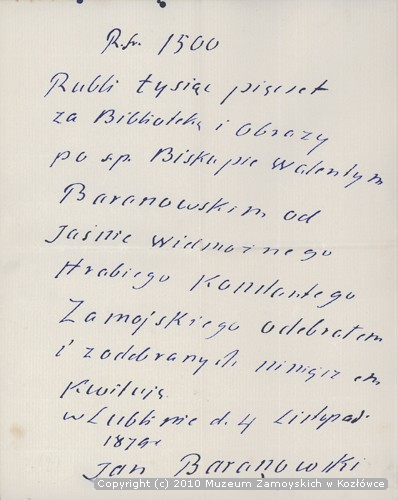 R.sr. 1500
Rubli tysiąc pięcset
za Bibliotekę i obrazy
po s.p. Biskupie Walentym
Baranowskim od
Jaśnie Wielmożnego
Hrabiego Konstantego
Zamojskiego odebrałem
i z odebranych niniejszem
Kwituję
w Lublinie d. 4 Listopad
1879
Jan Baranowski
Copyright (c) 2010 Muzeum Zamoyskich w Kozłówce